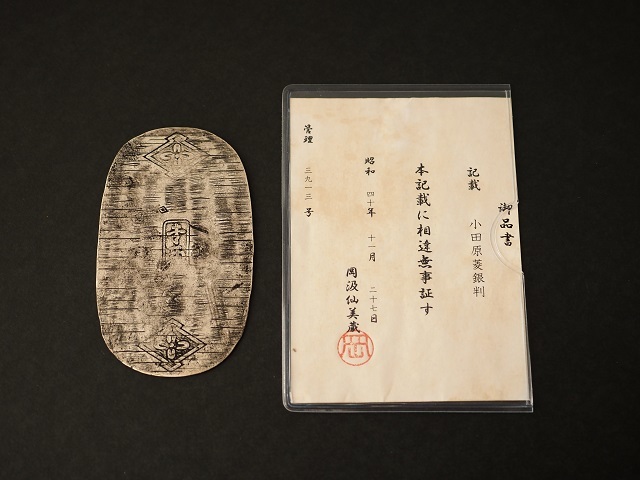 御品書
記載 小田原菱銀判
本記載に相違無事証す
昭和 四十年 十一月 二十七日
岡汲仙美蔵
管理 三九一三号